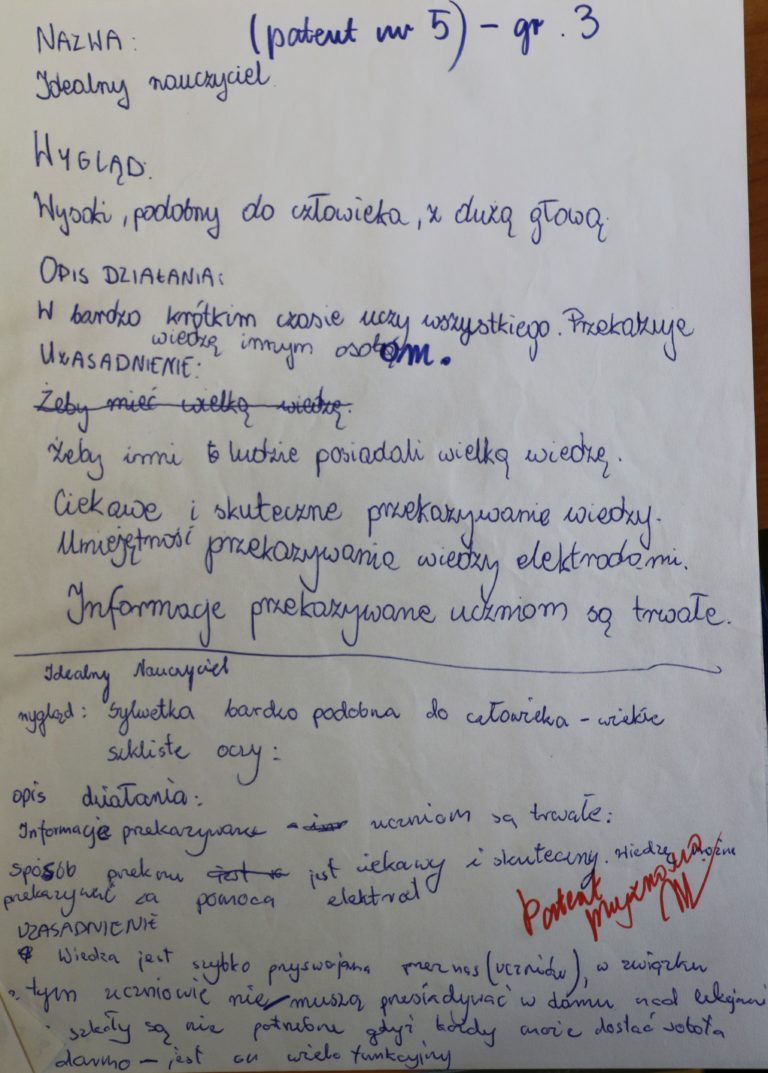 NAZWA: (patent nr 5) - gr. 3
Idealny nauczyciel
WYGLĄD:
Wysoki, podobny do człowieka, z dużą głową
OPIS DZIAŁANIA:
W bardzo krótkim czasie uczy wszystkiego. Przekazuje
wiedzę innym osobom.
UZASADNIENIE:
Żeby mieć wielką wiedzę.
Żeby inni ludzie posiadali wielką wiedzę.
Ciekawe i skuteczne przekazywanie wiedzy.
Umiejętność przekazywania wiedzy elektrodami.
Informacje przekazywane uczniom są trwałe.
Idealny Nauczyciel
wygląd: Sylwetka bardzo podobna do człowieka - wielkie
szkliste oczy:
opis działania:
Informacje przekazywane uczniom są trwałe:
Sposób przekazu jest ciekawy i skuteczny. Wiedzę można
przekazywać za pomocą elektrod
Patent
przyznano
UZASADNIENIE
Wiedza jest szybko przyswajana przez nas (uczniów), w związku
z tym uczniowie nie muszą przesiadywać w domu nad lekcjami
i szkoły są nie potrzebne gdyż każdy może dostać robota
darmo - jest on wielofunkcyjny